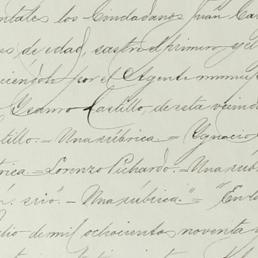 ntales los Ciudadanos Juan Ca
es de edad, sastre el primero y el
ciéndolo por el Agente munici
Genaro Castillo, de esta vecind
tillo.- Una rúbrica.= Ygnacio
rica.=Lorenzo Pichardo.-Una rúb
srio".- Una rúbrica."= "En la
lio de mil ochocientos noventa